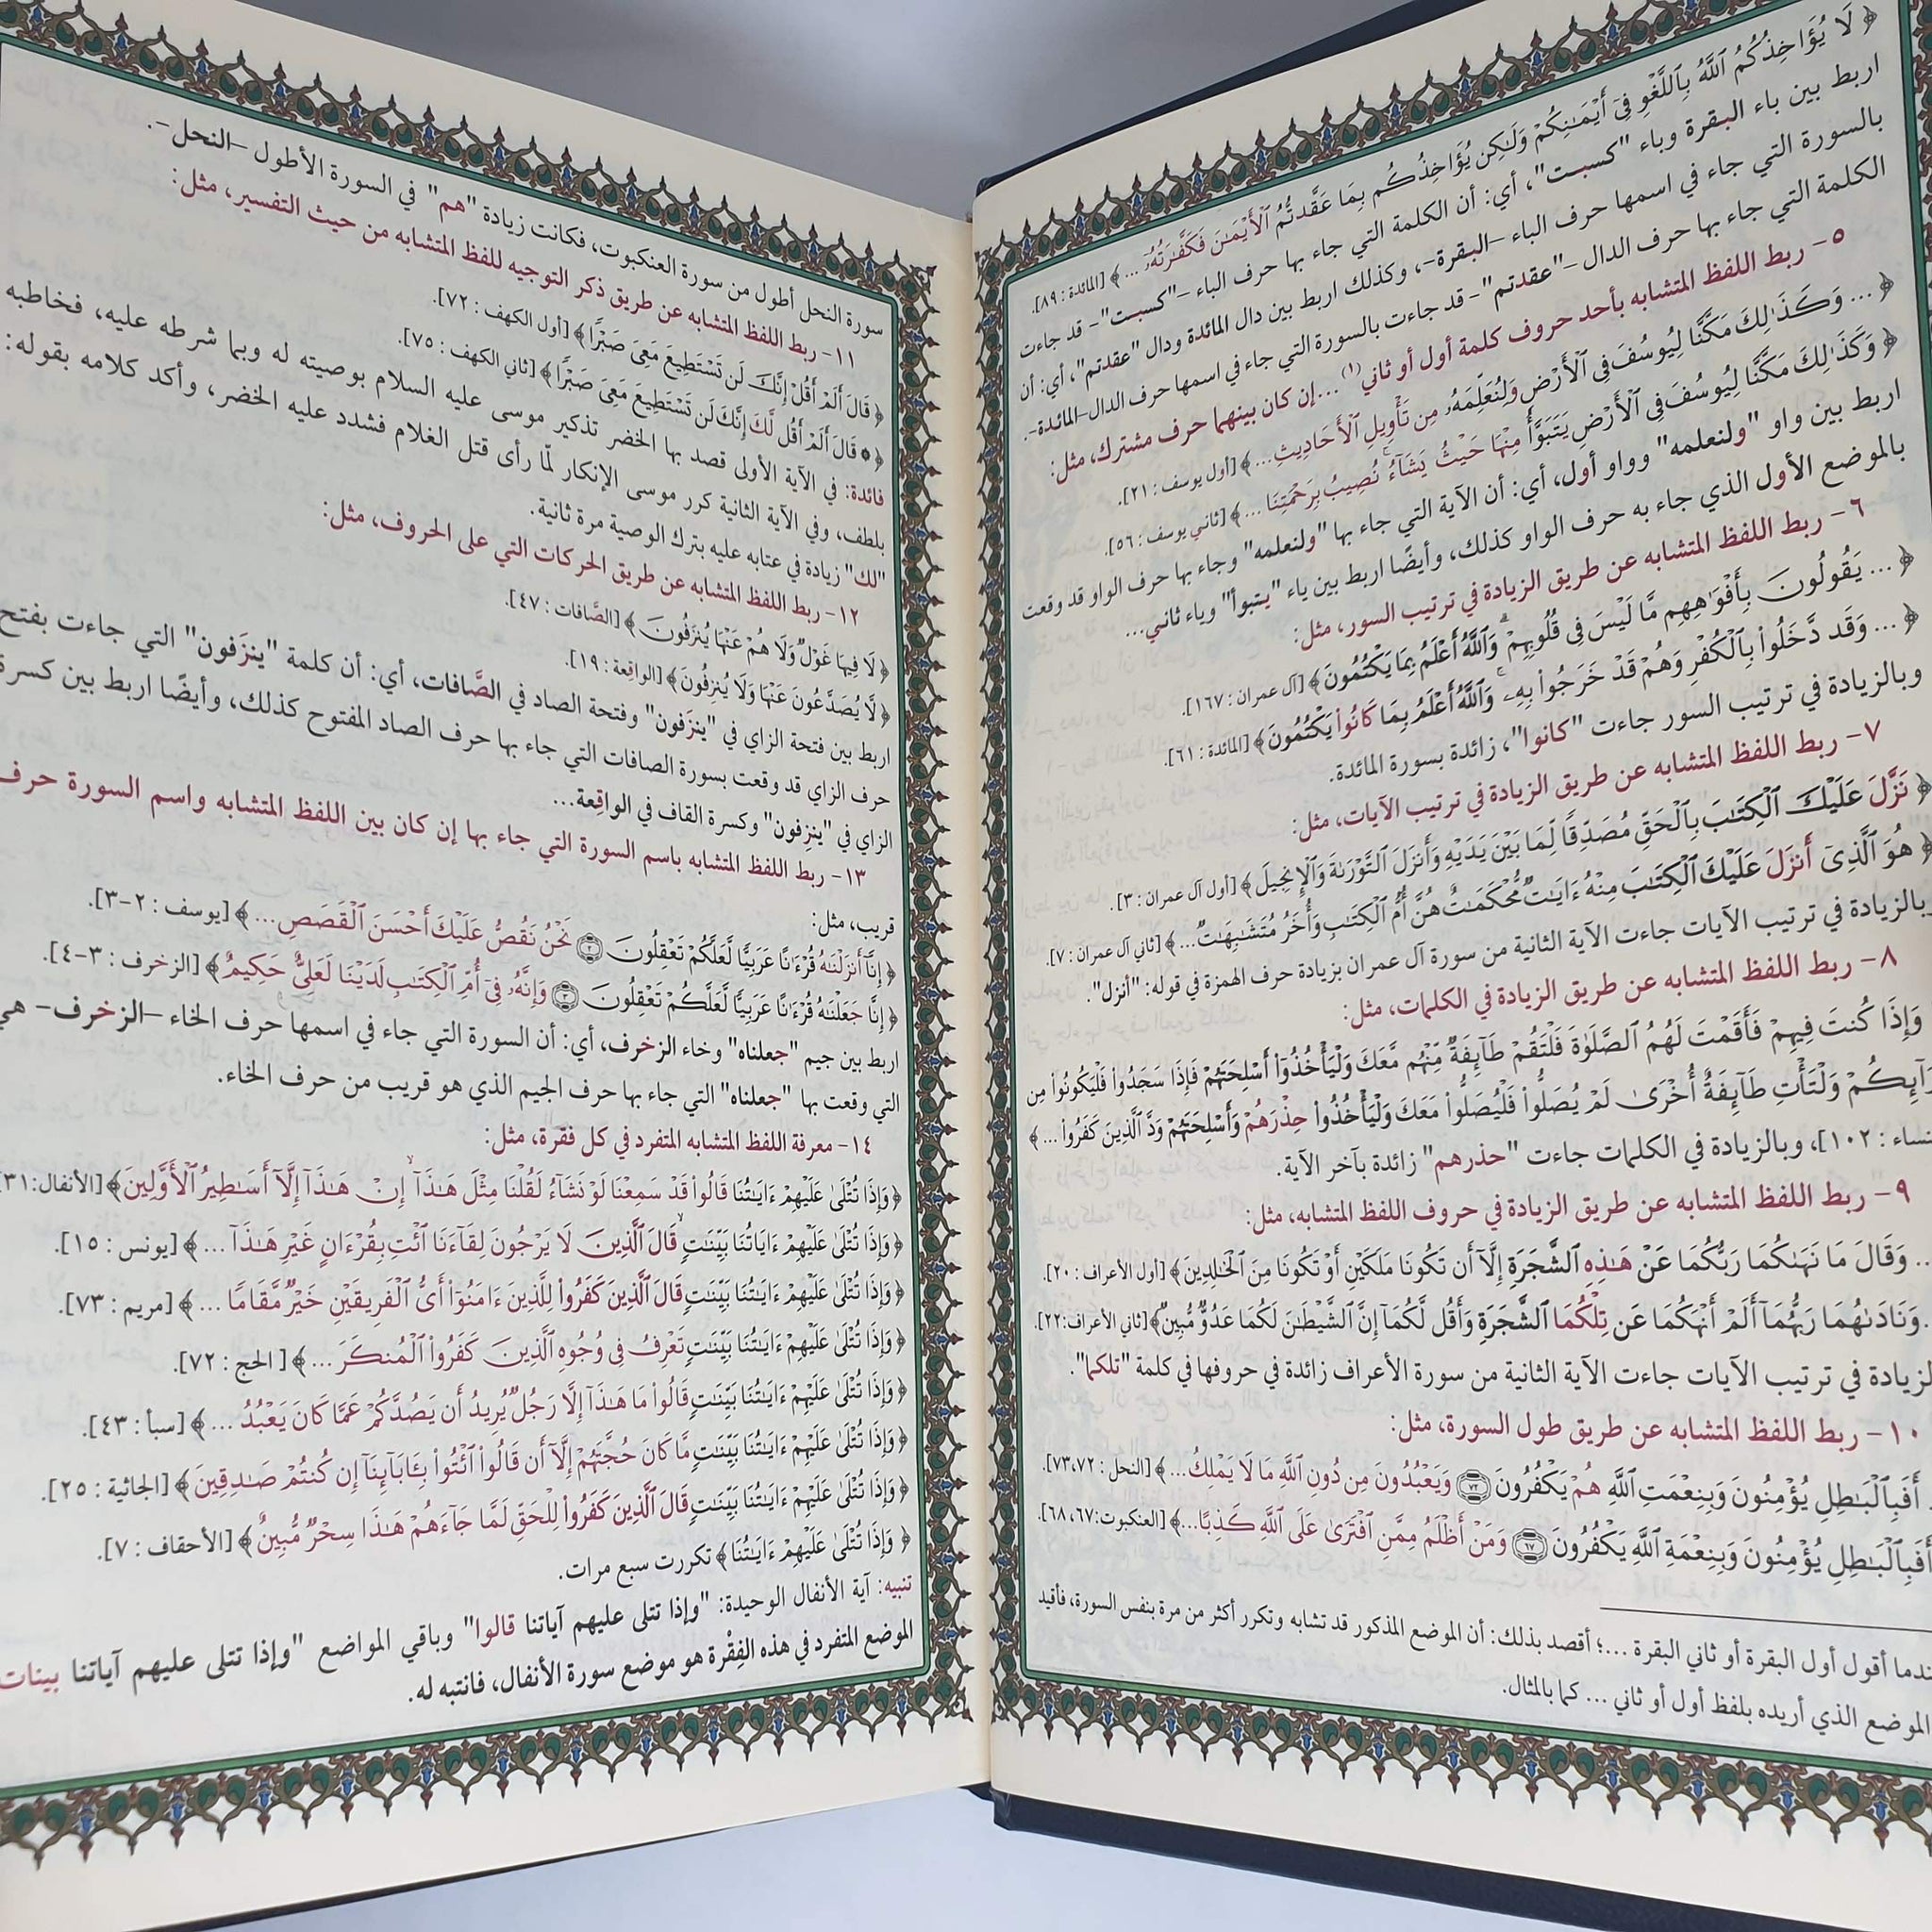 ﴿ لَا يُؤَاخِذُكُمُ ٱللَّهُ بِٱللَّغْوِ فِىٓ أَيْمَـٰنِكُمْ وَلَـٰكِن يُؤَاخِذُكُم بِمَا عَقَّدتُّمُ ٱلْأَيْمَـٰنَ فَكَفَّـٰرَتُهُۥٓ ... ﴾ [المائدة : ٨٩].
اربط بين باء البقرة وباء "كسبت"، أي: أن الكلمة التي جاء بها حرف الباء –"كسبت"– قد جاءت
بالسورة التي جاء في اسمها حرف الباء –البقرة–، وكذلك اربط بين دال المائدة ودال "عقدتم"، أي: أن
الكلمة التي جاء بها حرف الدال –"عقدتم"– قد جاءت بالسورة التي جاء في اسمها حرف الدال–المائدة–.
٥– ربط اللفظ المتشابه بأحد حروف كلمة أول أو ثاني(١)...إن كان بينهما حرف مشترك، مثل:
﴿ ... وَكَذَٰلِكَ مَكَّنَّا لِيُوسُفَ فِى ٱلْأَرْضِ وَلِنُعَلِّمَهُۥ مِن تَأْوِيلِ ٱلْأَحَادِيثِ... ﴾ [أول يوسف : ٢١].
﴿ وَكَذَٰلِكَ مَكَّنَّا لِيُوسُفَ فِى ٱلْأَرْضِ يَتَبَوَّأُ مِنْهَا حَيْثُ يَشَآءُ ۚ نُصِيبُ بِرَحْمَتِنَا ... ﴾ [ثاني يوسف : ٥٦].
اربط بين واو "ولنعلمه" وواو أول، أي: أن الآية التي جاء بها "ولنعلمه" وجاء بها حرف الواو قد وقعت
بالموضع الأول الذي جاء به حرف الواو كذلك، وأيضًا اربط بين ياء "يتبوأ" وياء ثاني...
٦– ربط اللفظ المتشابه عن طريق الزيادة في ترتيب السور، مثل:
﴿ ... يَقُولُونَ بِأَفْوَٰهِهِم مَّا لَيْسَ فِى قُلُوبِهِمْ ۗ وَٱللَّهُ أَعْلَمُ بِمَا يَكْتُمُونَ ﴾ [آل عمران : ١٦٧].
﴿ ... وَقَد دَّخَلُوا۟ بِٱلْكُفْرِ وَهُمْ قَدْ خَرَجُوا۟ بِهِۦ ۚ وَٱللَّهُ أَعْلَمُ بِمَا كَانُوا۟ يَكْتُمُونَ ﴾ [المائدة : ٦١].
وبالزيادة في ترتيب السور جاءت "كانوا"، زائدة بسورة المائدة.
٧– ربط اللفظ المتشابه عن طريق الزيادة في ترتيب الآيات، مثل:
﴿ نَزَّلَ عَلَيْكَ ٱلْكِتَـٰبَ بِٱلْحَقِّ مُصَدِّقًا لِّمَا بَيْنَ يَدَيْهِ وَأَنزَلَ ٱلتَّوْرَىٰةَ وَٱلْإِنجِيلَ ﴾ [أول آل عمران : ٣].
﴿ هُوَ ٱلَّذِىٓ أَنزَلَ عَلَيْكَ ٱلْكِتَـٰبَ مِنْهُ ءَايَـٰتٌ مُّحْكَمَـٰتٌ هُنَّ أُمُّ ٱلْكِتَـٰبِ وَأُخَرُ مُتَشَـٰبِهَـٰتٌ... ﴾ [ثاني آل عمران : ٧].
بالزيادة في ترتيب الآيات جاءت الآية الثانية من سورة آل عمران بزيادة حرف الهمزة في قوله: "أنزل".
٨– ربط اللفظ المتشابه عن طريق الزيادة في الكلمات، مثل:
وَإِذَا كُنتَ فِيهِمْ فَأَقَمْتَ لَهُمُ ٱلصَّلَوٰةَ فَلْتَقُمْ طَآئِفَةٌ مِّنْهُم مَّعَكَ وَلْيَأْخُذُوٓا۟ أَسْلِحَتَهُمْ فَإِذَا سَجَدُوا۟ فَلْيَكُونُوا۟ مِن
رَآئِكُمْ وَلْتَأْتِ طَآئِفَةٌ أُخْرَىٰ لَمْ يُصَلُّوا۟ فَلْيُصَلُّوا۟ مَعَكَ وَلْيَأْخُذُوا۟ حِذْرَهُمْ وَأَسْلِحَتَهُمْ وَدَّ ٱلَّذِينَ كَفَرُوا۟ ... ﴾
نساء : ١٠٢]، وبالزيادة في الكلمات جاءت "حذرهم" زائدة بآخر الآية.
٩– ربط اللفظ المتشابه عن طريق الزيادة في حروف اللفظ المتشابه، مثل:
.. وَقَالَ مَا نَهَىٰكُمَا رَبُّكُمَا عَنْ هَـٰذِهِ ٱلشَّجَرَةِ إِلَّآ أَن تَكُونَا مَلَكَيْنِ أَوْ تَكُونَا مِنَ ٱلْخَـٰلِدِينَ ﴾ [أول الأعراف : ٢٠].
.وَنَادَىٰهُمَا رَبُّهُمَآ أَلَمْ أَنْهَكُمَا عَن تِلْكُمَا ٱلشَّجَرَةِ وَأَقُل لَّكُمَآ إِنَّ ٱلشَّيْطَـٰنَ لَكُمَا عَدُوٌّ مُّبِينٌ﴾ [ثاني الأعراف:٢٢].
لزيادة في ترتيب الآيات جاءت الآية الثانية من سورة الأعراف زائدة في حروفها في كلمة "تلكما".
١٠– ربط اللفظ المتشابه عن طريق طول السورة، مثل:
. أَفَبِٱلْبَـٰطِلِ يُؤْمِنُونَ وَبِنِعْمَتِ ٱللَّهِ هُمْ يَكْفُرُونَ ٧٢ وَيَعْبُدُونَ مِن دُونِ ٱللَّهِ مَا لَا يَمْلِكُ... ﴾ [النحل : ٧٣،٧٢].
أَفَبِٱلْبَـٰطِلِ يُؤْمِنُونَ وَبِنِعْمَةِ ٱللَّهِ يَكْفُرُونَ ٦٧ وَمَنْ أَظْلَمُ مِمَّنِ ٱفْتَرَىٰ عَلَى ٱللَّهِ كَذِبًا...﴾ [العنكبوت:٦٨،٦٧].
ندما أقول أول البقرة أو ثاني البقرة ...؛ أقصد بذلك: أن الموضع المذكور قد تشابه وتكرر أكثر من مرة بنفس السورة، فأقيد
الموضع الذي أريده بلفظ أول أو ثاني ... كما بالمثال.
سورة النحل أطول من سورة العنكبوت، فكانت زيادة "هم" في السورة الأطول –النحل–.
١١– ربط اللفظ المتشابه عن طريق ذكر التوجيه للفظ المتشابه من حيث التفسير، مثل:
﴿ قَالَ أَلَمْ أَقُلْ إِنَّكَ لَن تَسْتَطِيعَ مَعِىَ صَبْرًا ﴾ [أول الكهف : ٧٢].
﴿ ۞ قَالَ أَلَمْ أَقُل لَّكَ إِنَّكَ لَن تَسْتَطِيعَ مَعِىَ صَبْرًا ﴾ [ثاني الكهف : ٧٥].
فائدة: في الآية الأولى قصد بها الخضر تذكير موسى عليه السلام بوصيته له وبما شرطه عليه، فخاطبه
بلطف، وفي الآية الثانية كرر موسى الإنكار لمّا رأى قتل الغلام فشدد عليه الخضر، وأكد كلامه بقوله:
"لك" زيادة في عتابه عليه بترك الوصية مرة ثانية.
١٢– ربط اللفظ المتشابه عن طريق الحركات التي على الحروف، مثل:
﴿ لَا فِيهَا غَوْلٌ وَلَا هُمْ عَنْهَا يُنزَفُونَ ﴾ [الصَّافات : ٤٧].
﴿ لَّا يُصَدَّعُونَ عَنْهَا وَلَا يُنزِفُونَ ﴾ [الواقعة : ١٩].
اربط بين فتحة الزاي في "ينزَفون" وفتحة الصاد في الصَّافات، أي: أن كلمة "ينزَفون" التي جاءت بفتح
حرف الزاي قد وقعت بسورة الصافات التي جاء بها حرف الصاد المفتوح كذلك، وأيضًا اربط بين كسرة
الزاي في "ينزِفون" وكسرة القاف في الواقِعة...
١٣– ربط اللفظ المتشابه باسم السورة التي جاء بها إن كان بين اللفظ المتشابه واسم السورة حرف
قريب، مثل:
﴿ إِنَّآ أَنزَلْنَـٰهُ قُرْءَٰنًا عَرَبِيًّا لَّعَلَّكُمْ تَعْقِلُونَ ٢ نَحْنُ نَقُصُّ عَلَيْكَ أَحْسَنَ ٱلْقَصَصِ... ﴾ [يوسف : ٢–٣].
﴿ إِنَّا جَعَلْنَـٰهُ قُرْءَٰنًا عَرَبِيًّا لَّعَلَّكُمْ تَعْقِلُونَ ٣ وَإِنَّهُۥ فِىٓ أُمِّ ٱلْكِتَـٰبِ لَدَيْنَا لَعَلِىٌّ حَكِيمٌ ﴾ [الزخرف : ٣–٤].
اربط بين جيم "جعلناه" وخاء الزخرف، أي: أن السورة التي جاء في اسمها حرف الخاء –الزخرف– هي
التي وقعت بها "جعلناه" التي جاء بها حرف الجيم الذي هو قريب من حرف الخاء.
١٤– معرفة اللفظ المتشابه المتفرد في كل فقرة، مثل:
﴿وَإِذَا تُتْلَىٰ عَلَيْهِمْ ءَايَـٰتُنَا قَالُوا۟ قَدْ سَمِعْنَا لَوْ نَشَآءُ لَقُلْنَا مِثْلَ هَـٰذَآ ۙ إِنْ هَـٰذَآ إِلَّآ أَسَـٰطِيرُ ٱلْأَوَّلِينَ﴾ [الأنفال:٣١]
﴿وَإِذَا تُتْلَىٰ عَلَيْهِمْ ءَايَاتُنَا بَيِّنَـٰتٍ ۙ قَالَ ٱلَّذِينَ لَا يَرْجُونَ لِقَآءَنَا ٱئْتِ بِقُرْءَانٍ غَيْرِ هَـٰذَآ ... ﴾ [يونس : ١٥].
﴿وَإِذَا تُتْلَىٰ عَلَيْهِمْ ءَايَـٰتُنَا بَيِّنَـٰتٍ قَالَ ٱلَّذِينَ كَفَرُوا۟ لِلَّذِينَ ءَامَنُوٓا۟ أَىُّ ٱلْفَرِيقَيْنِ خَيْرٌ مَّقَامًا ... ﴾ [مريم : ٧٣].
﴿وَإِذَا تُتْلَىٰ عَلَيْهِمْ ءَايَـٰتُنَا بَيِّنَـٰتٍ تَعْرِفُ فِى وُجُوهِ ٱلَّذِينَ كَفَرُوا۟ ٱلْمُنكَرَ ... ﴾ [ الحج : ٧٢].
﴿وَإِذَا تُتْلَىٰ عَلَيْهِمْ ءَايَـٰتُنَا بَيِّنَـٰتٍ قَالُوا۟ مَا هَـٰذَآ إِلَّا رَجُلٌ يُرِيدُ أَن يَصُدَّكُمْ عَمَّا كَانَ يَعْبُدُ ... ﴾ [سبأ : ٤٣].
﴿وَإِذَا تُتْلَىٰ عَلَيْهِمْ ءَايَـٰتُنَا بَيِّنَـٰتٍ مَّا كَانَ حُجَّتَهُمْ إِلَّآ أَن قَالُوا۟ ٱئْتُوا۟ بِـَٔابَآئِنَآ إِن كُنتُمْ صَـٰدِقِينَ ﴾ [الجاثية : ٢٥].
﴿وَإِذَا تُتْلَىٰ عَلَيْهِمْ ءَايَـٰتُنَا بَيِّنَـٰتٍ قَالَ ٱلَّذِينَ كَفَرُوا۟ لِلْحَقِّ لَمَّا جَآءَهُمْ هَـٰذَا سِحْرٌ مُّبِينٌ ﴾ [الأحقاف : ٧].
﴿ وَإِذَا تُتْلَىٰ عَلَيْهِمْ ءَايَـٰتُنَا ﴾ تكررت سبع مرات.
تنبيه: آية الأنفال الوحيدة: "وإذا تتلى عليهم آياتنا قالوا" وباقي المواضع "وإذا تتلى عليهم آياتنا بينات
الموضع المتفرد في هذه الفِقْرة هو موضع سورة الأنفال، فانتبه له.